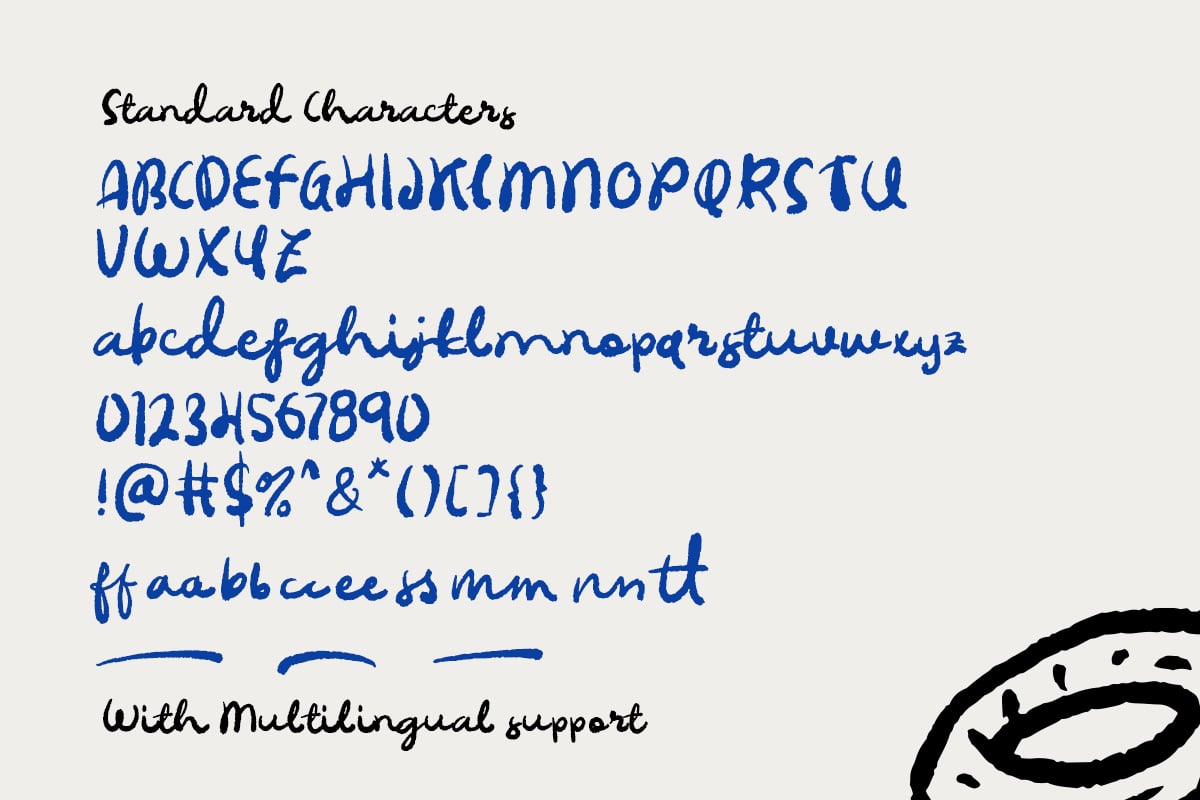 Standard Characters
ABCDEFGHIJKLMNOPQRSTU
VWXYZ
abcdefghijklmnopqrstuvwxyz
01234567890
!@#$%^&*()[]{}
ff aa bb cc ee ss mm nn tt
With Multilingual support